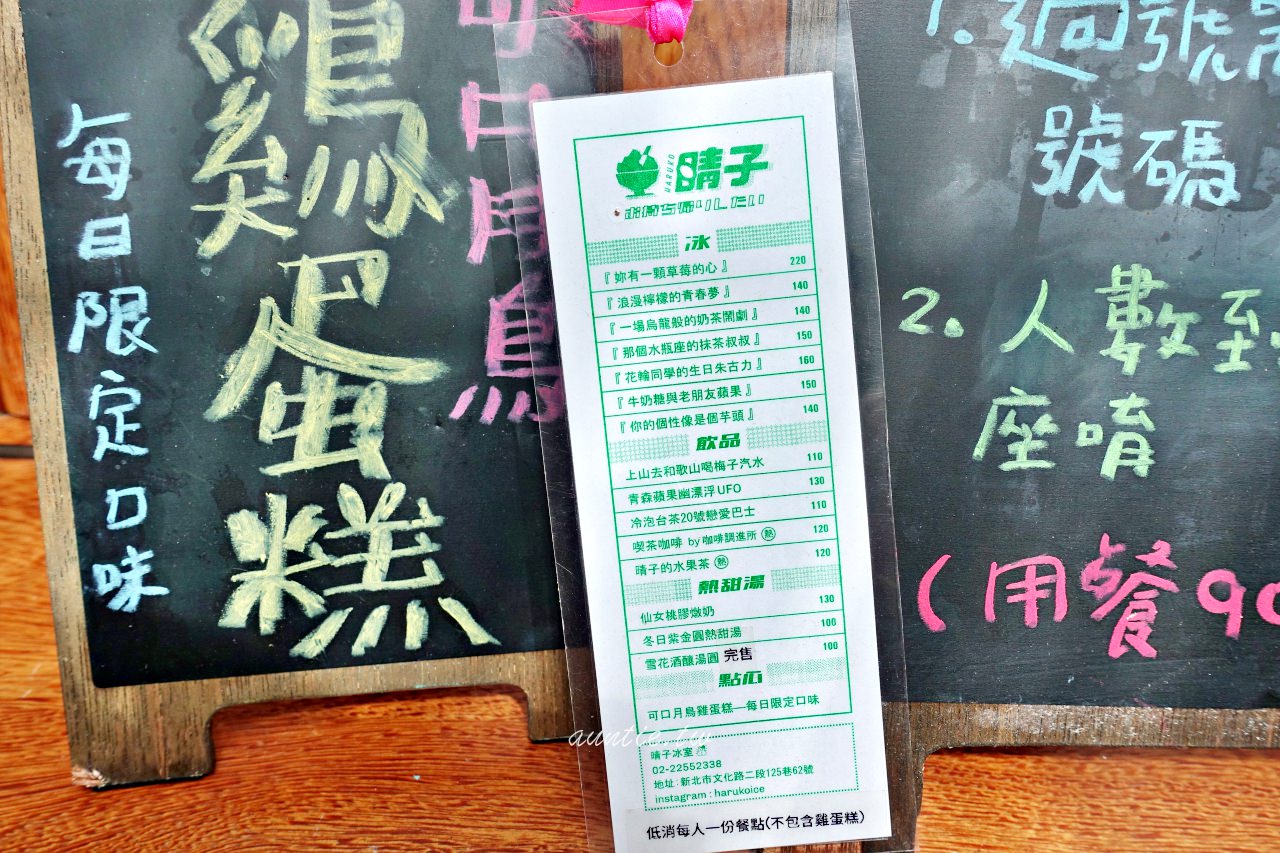 可口月鳥
鷄蛋糕
每日限定口味
HARUKO
晴子
お持ち帰りしたい
冰
『 妳有一顆草莓的心 』 220
『 浪漫檸檬的青春夢 』 140
『 一場烏龍般的奶茶鬧劇 』 140
『 那個水瓶座的抹茶叔叔 』 150
『 花輪同學的生日朱古力 』 160
『 牛奶糖與老朋友蘋果 』 150
『 你的個性像是個芋頭 』 140
飲品
上山去和歌山喝梅子汽水 110
青森蘋果幽漂浮UFO 130
冷泡台茶20號戀愛巴士 110
喫茶咖啡 by 咖啡調進所 熱 120
晴子的水果茶 熱 120
熱甜湯
仙女桃膠燉奶 130
冬日紫金圓熱甜湯 100
雪花酒釀湯圓 完售 100
點心
可口月鳥雞蛋糕—每日限定口味
晴子冰室
02-22552338
地址:新北市文化路二段125巷62號
instagram : harukoice
低消每人一份餐點(不包含雞蛋糕)
auntie.tw
1. 過號
號碼
2. 人數到
座唷
(用餐90